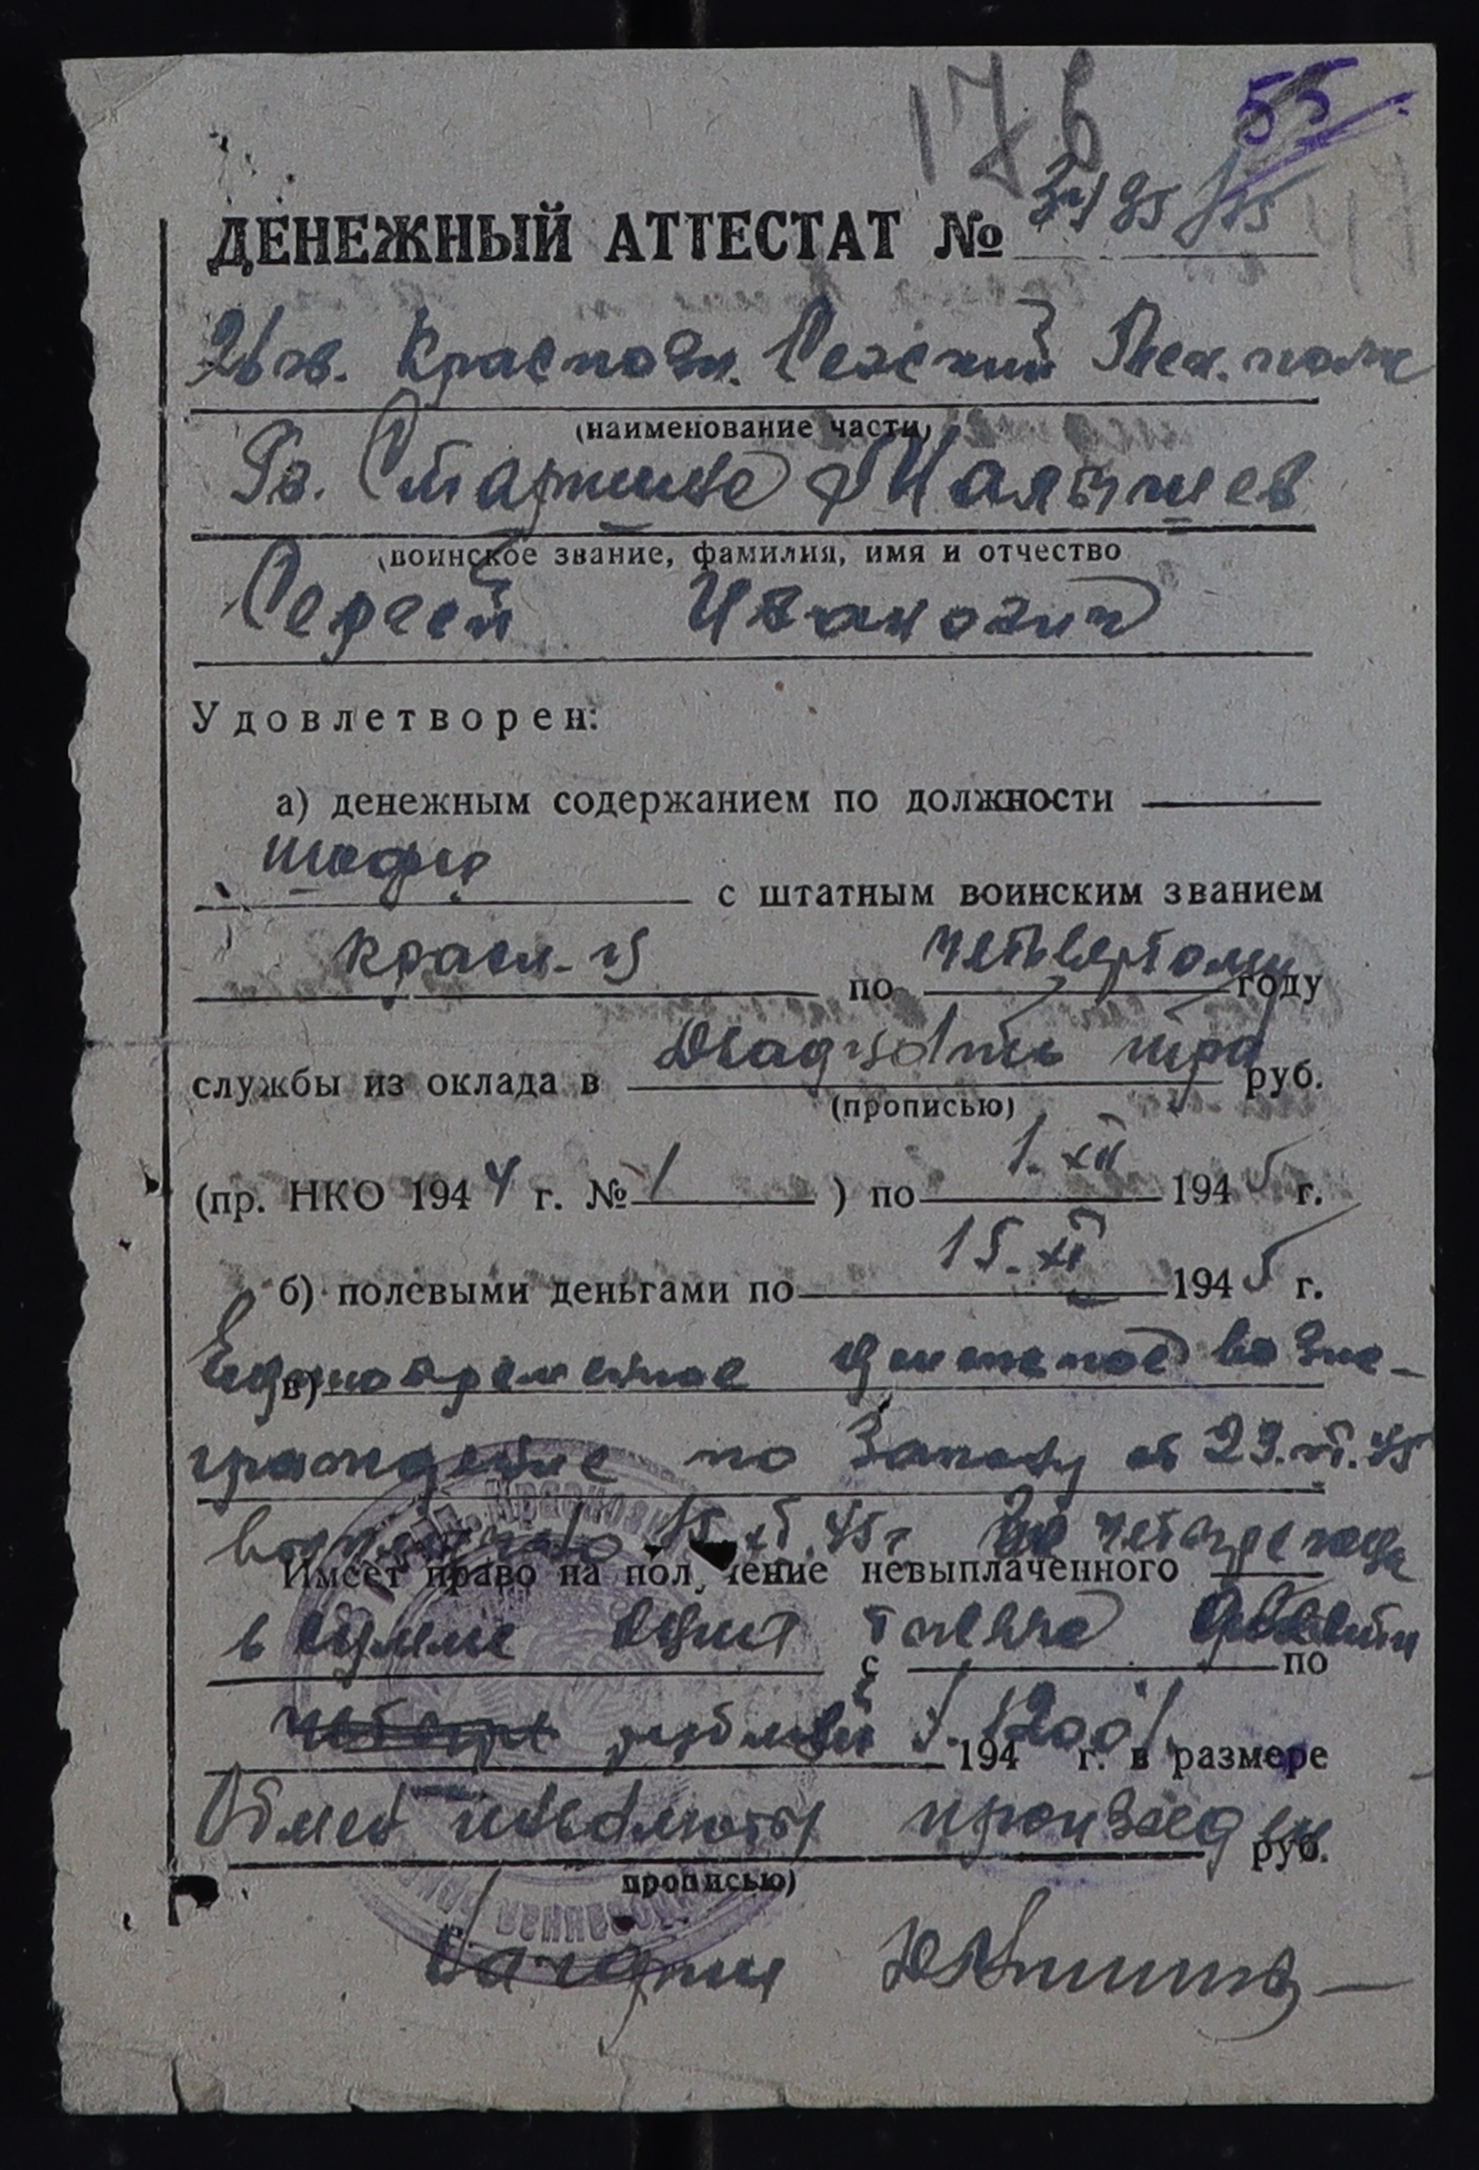 176 55
ДЕНЕЖНЫЙ АТТЕСТАТ №
Краснозн. Сежский полк
(наименование части)
Гв. Старшина Малышев
(воинское звание, фамилия, имя и отчество
Сергей Иванович
Удовлетворен:
а) денежным содержанием по должности
шофер
с штатным воинским званием
красн-ц по четвертому году
службы из оклада в Двадцать три руб.
(прописью)
(пр. НКО 1944 г. № 1 ) по 1.XII 1945 г.
б) полевыми деньгами по 15.XI 1945 г.
в) Единовременное денежное возна-
граждение по Закону от 23.VI.45
выплачено 15.XI.45г за четыре года
Имеет право на получение невыплаченного
в сумме одна тысяча двести
с по
рублей /1200/
194 г. в размере
Обмен инвалюты произведен
руб.
прописью)